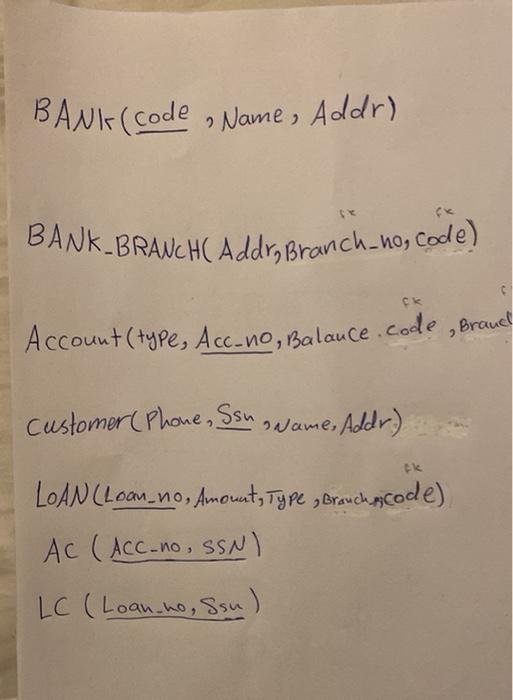 BANK(code, Name, Addr)
fk fk
BANK_BRANCH(Addr, Branch_no, Code)
fk f
Account(type, Acc_no, Balance. code, Branch
Customer(Phone, Ssn, Name, Addr)
fk
LOAN(Loan_no, Amount, Type, Branch, code)
AC (ACC_no, SSN)
LC (Loan_no, Ssn)